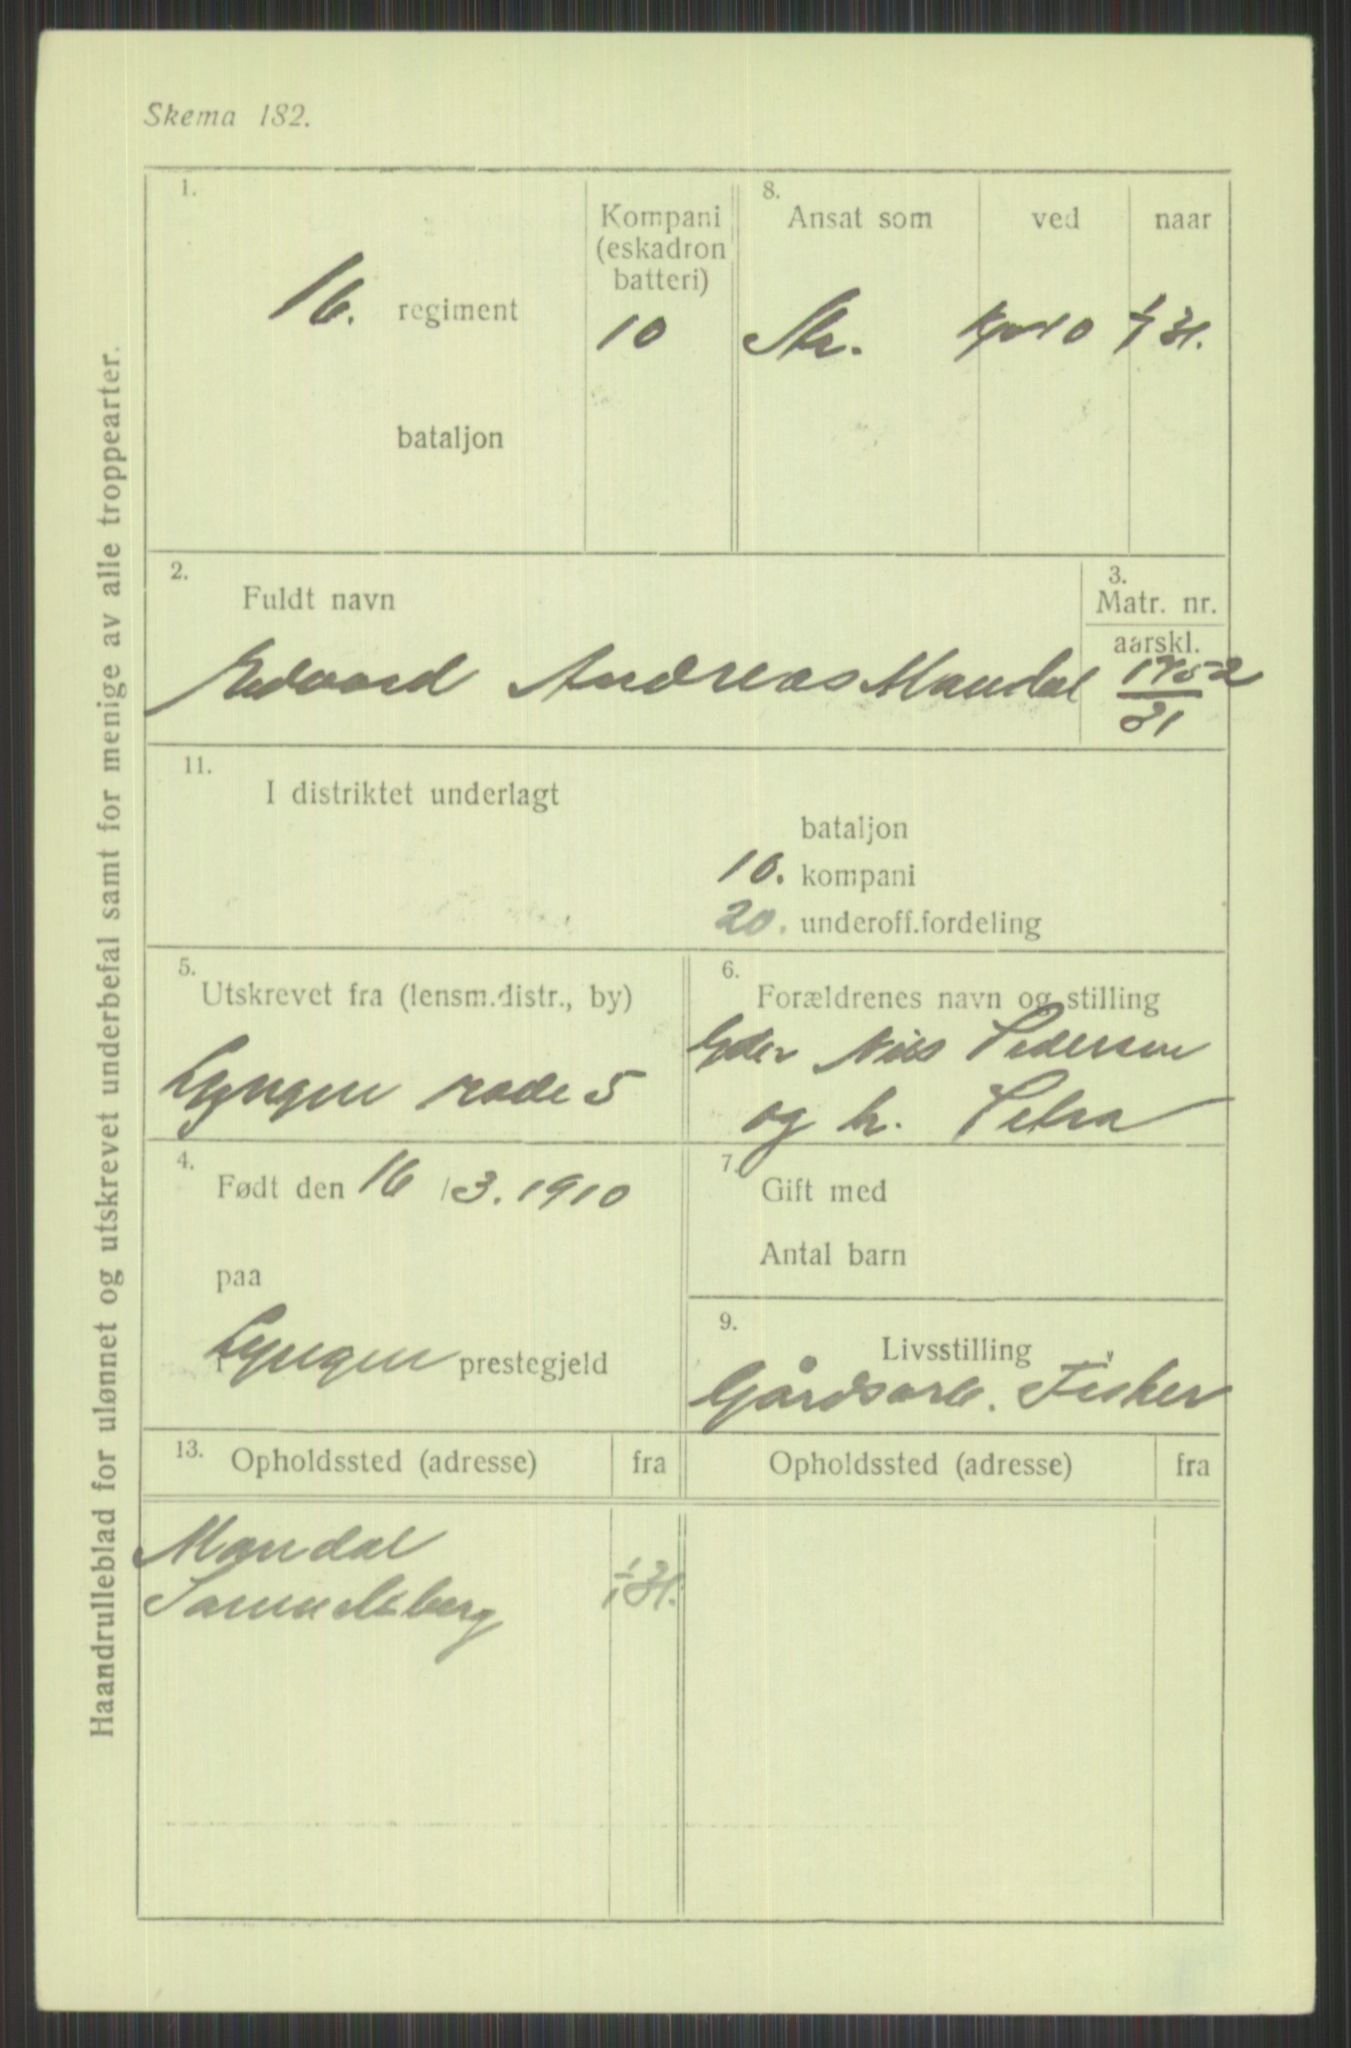 Skema 182.
Haandrulleblad for ulønnet og utskrevet underbefal samt for menige av alle troppearter.
1.
16. regiment
bataljon
Kompani
(eskadron
batteri)
10
8.
Ansat som
ved
naar
Str.
Kp 10
1/1 31.
2.
Fuldt navn
Edvard Andreas Mandal
3.
Matr. nr.
aarskl.
1752
31
11.
I distriktet underlagt
bataljon
10. kompani
20. underoff.fordeling
5.
Utskrevet fra (lensm.distr., by)
Lyngen rode 5
6.
Forældrenes navn og stilling
Gdbr Nils Pedersen
og h. Petra
4.
Født den 16/3.1910
paa
i Lyngen prestegjeld
7.
Gift med
Antal barn
9.
Livsstilling
Gårdsarb. Fisker
13.
Opholdssted (adresse)
fra
Opholdssted (adresse)
fra
Mandal
Samuelsberg
1/1 31.